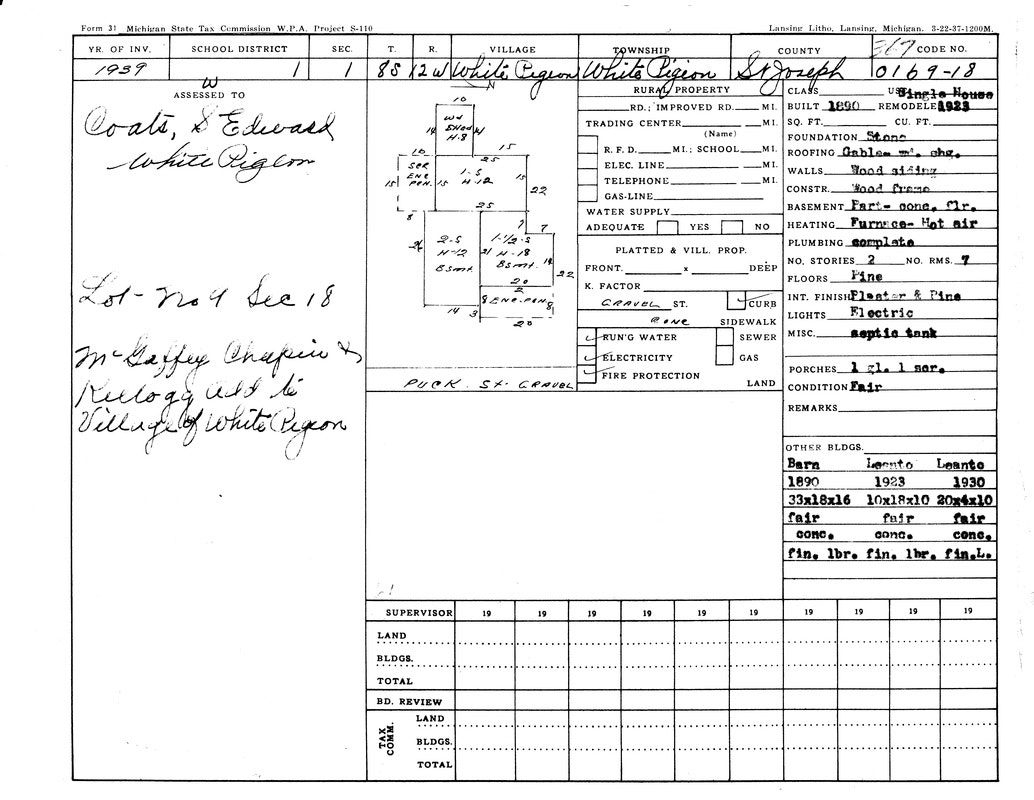 Form 31 Michigan State Tax Commission W.P.A. Project S-110
Lansing Litho, Lansing, Michigan. 3-22-37-1200M.
YR. OF INV. SCHOOL DISTRICT SEC. T. R. VILLAGE TOWNSHIP COUNTY 367 CODE NO.
1939 1 1 8S 12W White Pigeon White Pigeon St Joseph 0169-18
W
ASSESSED TO
Coats, S Edward
White Pigeon
Lot- No 4 Sec 18
McGaffey Chapin &
Kellogg Add to
Village of White Pigeon
N
10
Wd
Encd
H-8
14
15
10
25
Scr
Enc
Pch.
15
1-S
H-12
15
15
22
8
25
7
7
2-S
H-12
Bsmt.
1-1/2-S
H-18
Bsmt.
21
14
22
20
2
8 Enc. Pch. 8
14
3
20
PUCK. St. GRAVEL
RURAL PROPERTY
RD.; IMPROVED RD. MI.
TRADING CENTER MI.
(Name)
R. F. D. MI.; SCHOOL MI.
ELEC. LINE MI.
TELEPHONE MI.
GAS-LINE
WATER SUPPLY
ADEQUATE YES NO
PLATTED & VILL. PROP.
FRONT. x DEEP
K. FACTOR
GRAVEL ST. CURB
CONC SIDEWALK
RUN'G WATER SEWER
ELECTRICITY GAS
FIRE PROTECTION
LAND
CLASS USE Single House
BUILT 1890 REMODELED 1923
SQ. FT. CU. FT.
FOUNDATION Stone
ROOFING Gable- wd. shg.
WALLS Wood siding
CONSTR. Wood frame
BASEMENT Part- conc. flr.
HEATING Furnace- Hot air
PLUMBING complete
NO. STORIES 2 NO. RMS. 7
FLOORS Pine
INT. FINISH Plaster & Pine
LIGHTS Electric
MISC. septic tank
PORCHES 1 gl. 1 scr.
CONDITION Fair
REMARKS
OTHER BLDGS.
Barn Leanto Leanto
1890 1923 1930
33x18x16 10x18x10 20x4x10
fair fair fair
conc. conc. conc.
fin. lbr. fin. lbr. fin.L.
SUPERVISOR 19 19 19 19 19 19 19 19 19 19
LAND
BLDGS.
TOTAL
BD. REVIEW
TAX COMM.
LAND
BLDGS.
TOTAL